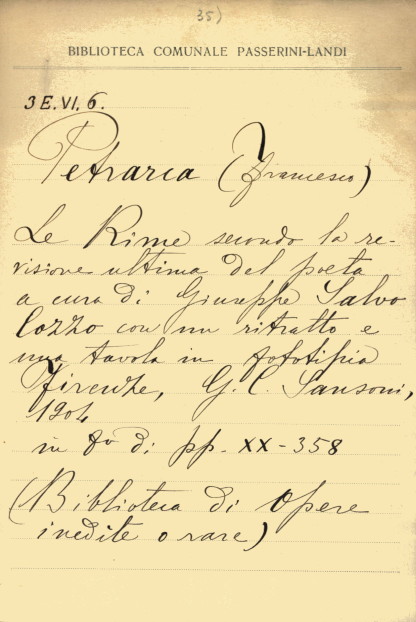 35)
BIBLIOTECA COMUNALE PASSERINI-LANDI
3E.VI.6.
Petrarca (Francesco)
Le Rime secondo la re-
visione ultima del poeta
a cura di Giuseppe Salvo
Cozzo con un ritratto e
una tavola in fototipia
Firenze, G. C. Sansoni,
1904
in 8º di pp. XX-358
(Biblioteca di Opere
inedite o rare)